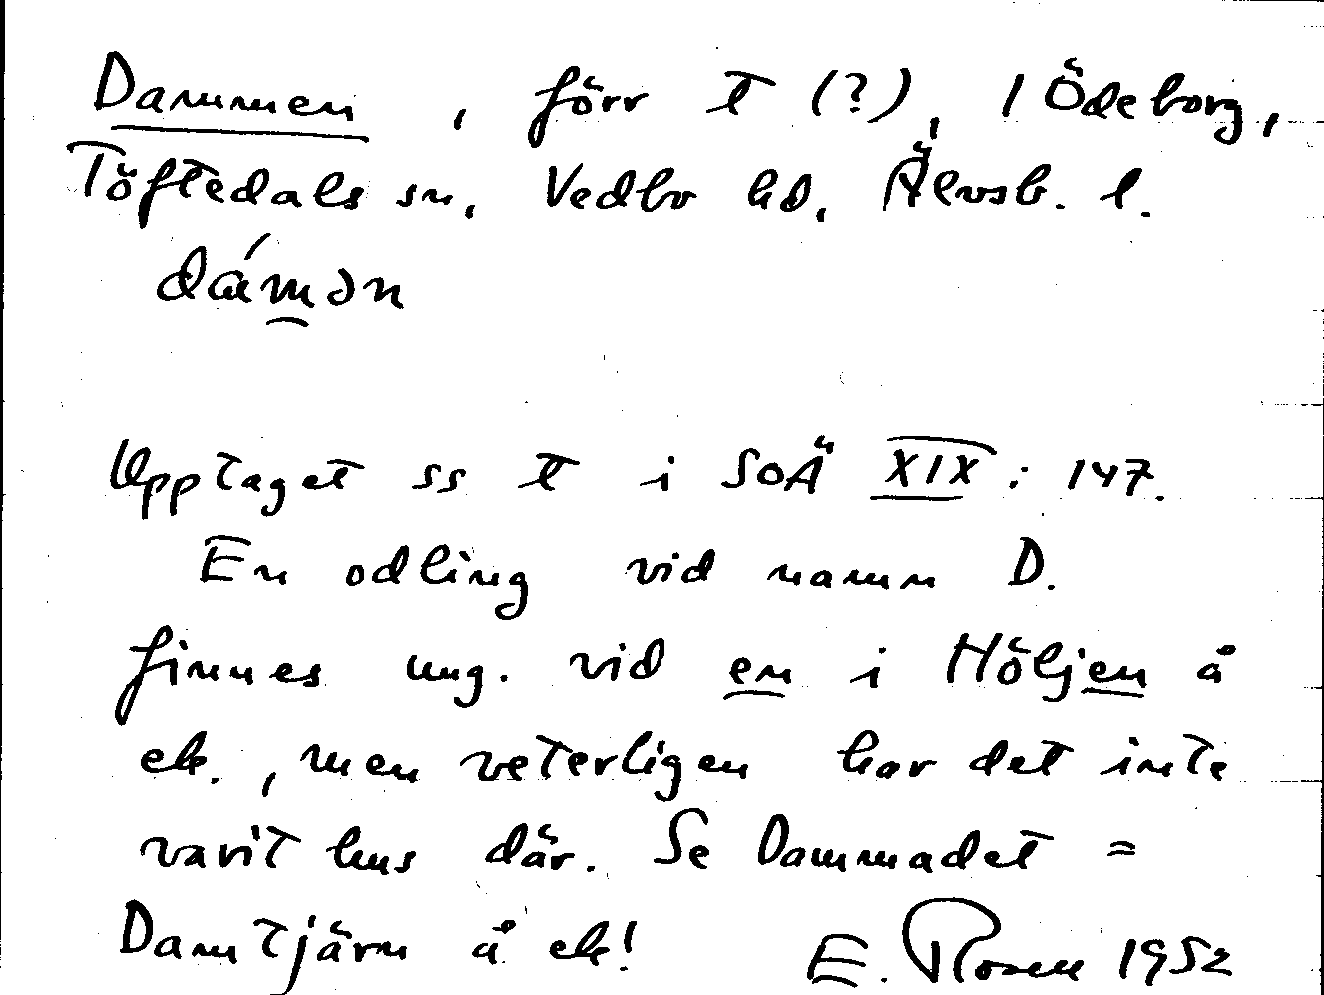 Dammen, förr t (?), i Ödeborg,
Töftedals sn, Vedbo hd, Älvsb. l.
dámən
Upptaget ss t i SOÄ XIX: 147.
En odling vid namn D.
finnes ung. vid en i Höljen å
ek., men veterligen har det inte
varit hus där. Se Dammadet =
Damtjärn å ek!
E. Rosen 1952